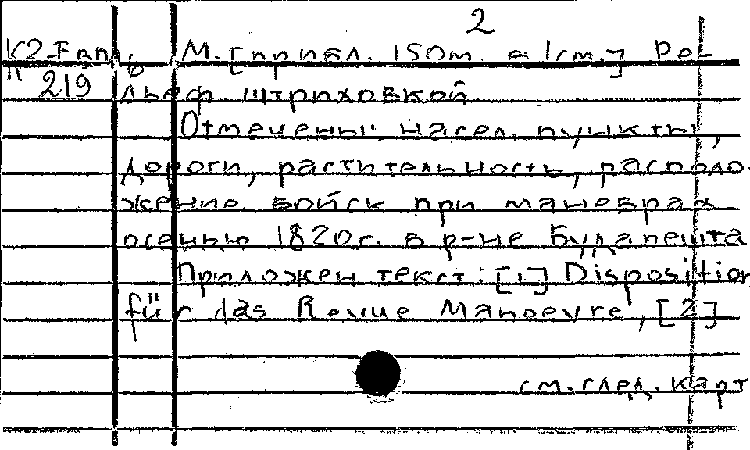 2
М. [прибл. 150m. в 1см.] Ре-
219 льеф штриховкой
Отмечены: насел. пункты,
дороги, растительность, располо-
жение войск при маневрах
осенью 1820г. в р-не Будапешта
Приложен текст: [1] Disposition
für das Revue Manoevre, [2]
см. след. карт